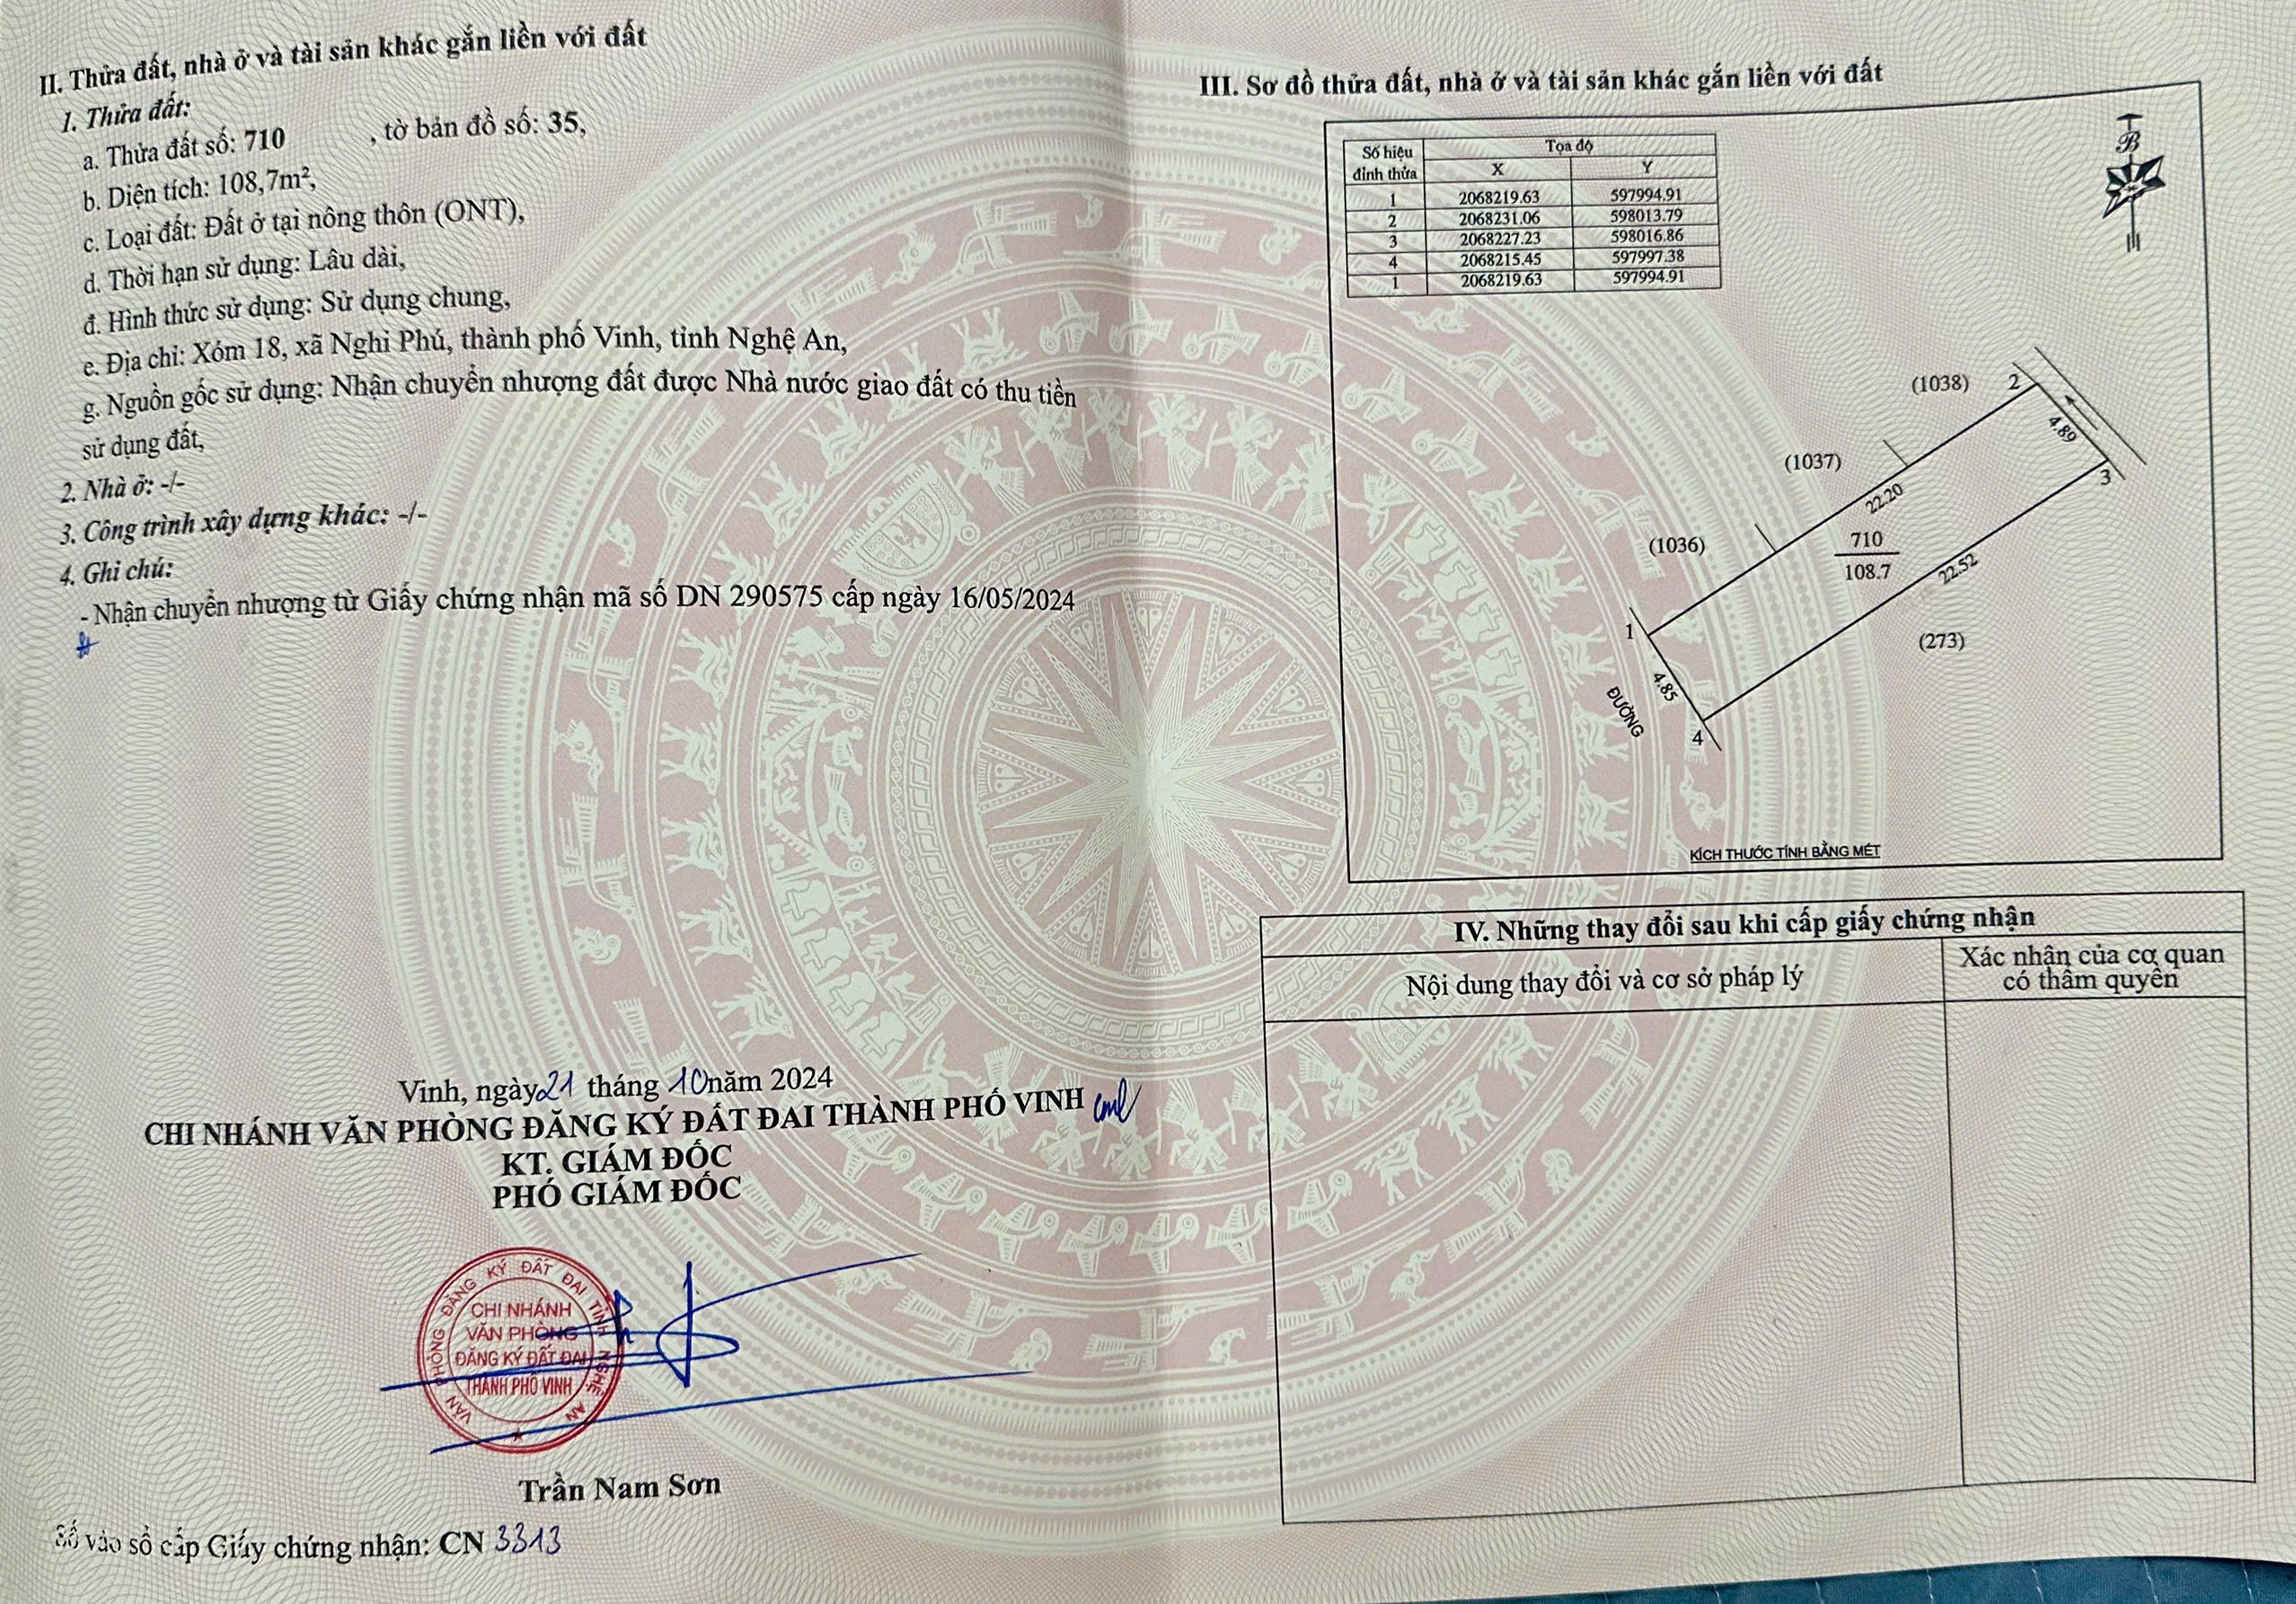 II. Thửa đất, nhà ở và tài sản khác gắn liền với đất
1. Thửa đất:
a. Thửa đất số: 710 , tờ bản đồ số: 35,
b. Diện tích: 108,7m²,
c. Loại đất: Đất ở tại nông thôn (ONT),
d. Thời hạn sử dụng: Lâu dài,
đ. Hình thức sử dụng: Sử dụng chung,
e. Địa chỉ: Xóm 18, xã Nghi Phú, thành phố Vinh, tỉnh Nghệ An,
g. Nguồn gốc sử dụng: Nhận chuyển nhượng đất được Nhà nước giao đất có thu tiền
sử dụng đất,
2. Nhà ở: -/-
3. Công trình xây dựng khác: -/-
4. Ghi chú:
- Nhận chuyển nhượng từ Giấy chứng nhận mã số DN 290575 cấp ngày 16/05/2024
Vinh, ngày 21 tháng 10 năm 2024
CHI NHÁNH VĂN PHÒNG ĐĂNG KÝ ĐẤT ĐAI THÀNH PHỐ VINH
KT. GIÁM ĐỐC
PHÓ GIÁM ĐỐC
VĂN PHÒNG ĐĂNG KÝ ĐẤT ĐAI TỈNH NGHỆ AN
CHI NHÁNH
VĂN PHÒNG
ĐĂNG KÝ ĐẤT ĐAI
THÀNH PHỐ VINH
Trần Nam Sơn
Số vào sổ cấp Giấy chứng nhận: CN 3313
III. Sơ đồ thửa đất, nhà ở và tài sản khác gắn liền với đất
Số hiệu đỉnh thửa Tọa độ
X Y
1 2068219.63 597994.91
2 2068231.06 598013.79
3 2068227.23 598016.86
4 2068215.45 597997.38
1 2068219.63 597994.91
B
(1038) 2
4.89
(1037)
3
22.20
(1036)
710
108.7
22.52
1
(273)
4.85
ĐƯỜNG
4
KÍCH THƯỚC TÍNH BẰNG MÉT
IV. Những thay đổi sau khi cấp giấy chứng nhận
Nội dung thay đổi và cơ sở pháp lý
Xác nhận của cơ quan
có thẩm quyền